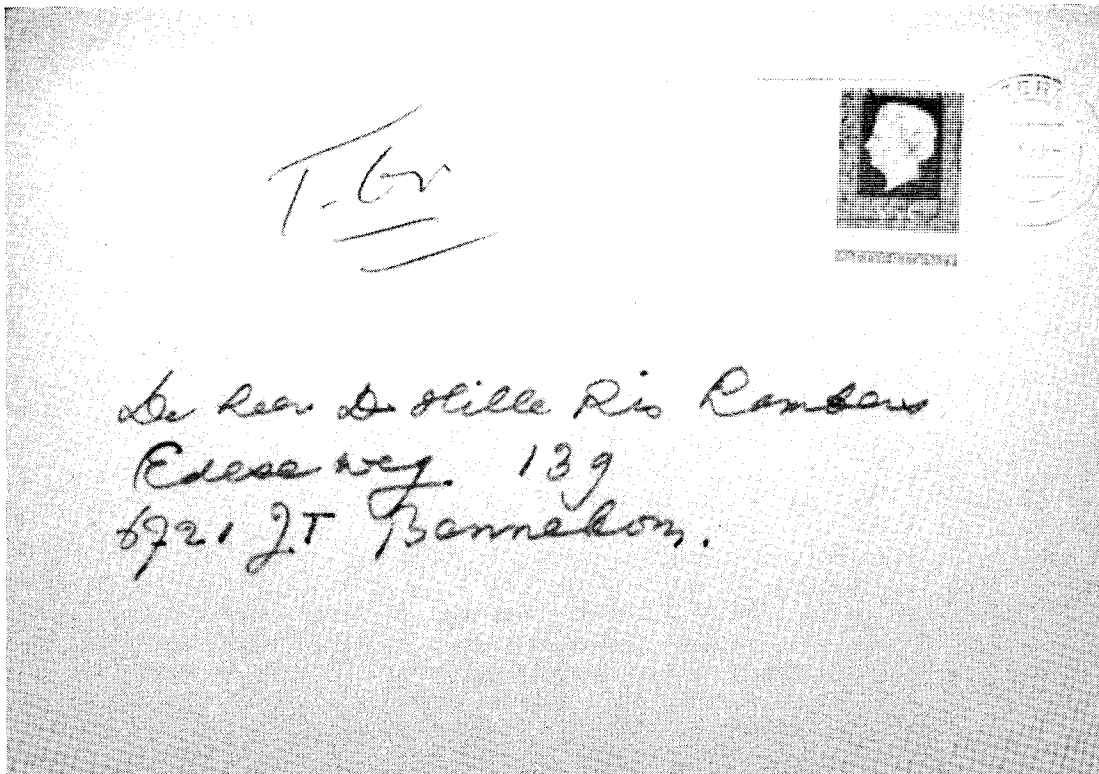 De Heer D Hille Ris Lambers
Edeseweg 139
6721 JT Bennekom.